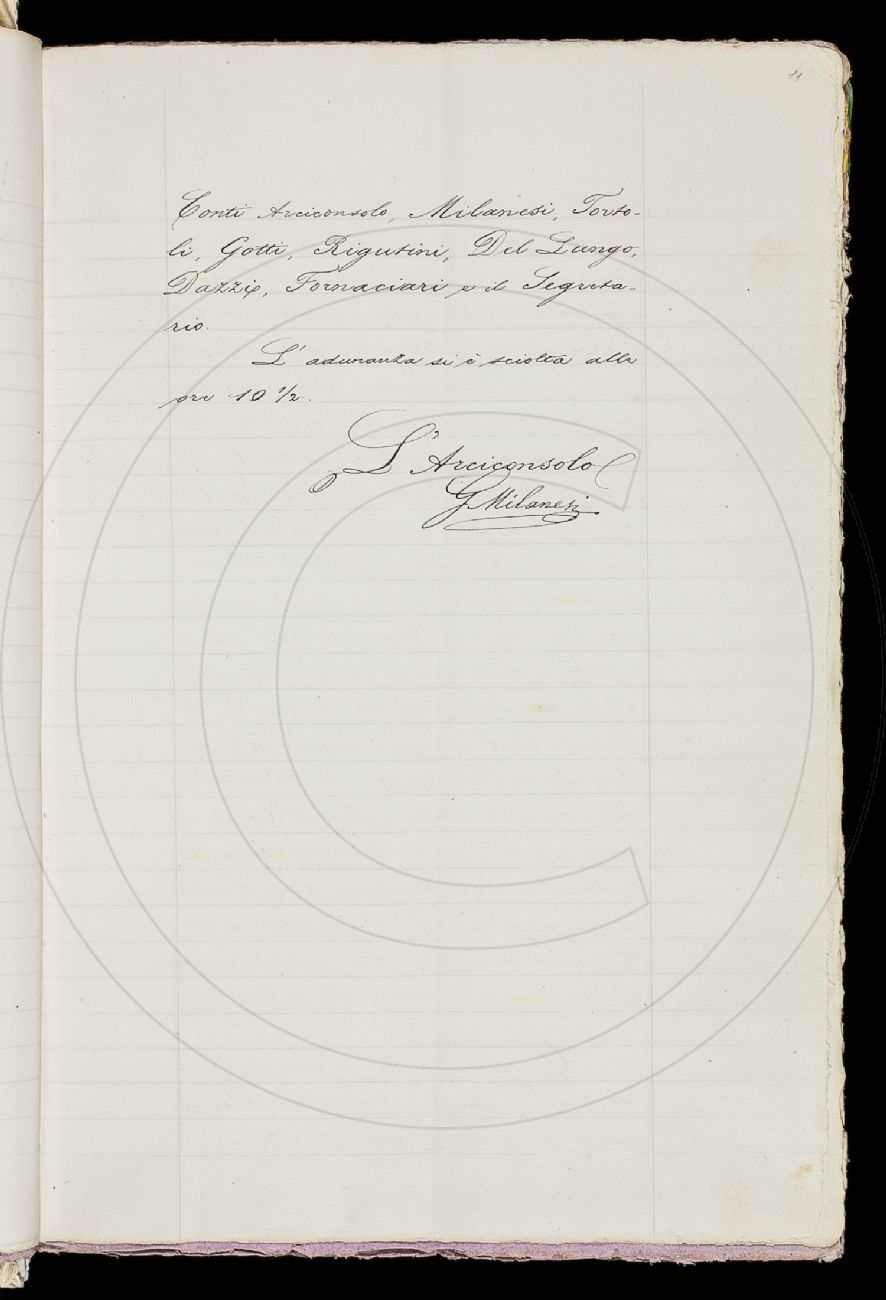 11
Conti Arciconsolo, Milanesi, Torto-
li, Gotti, Rigutini, Del Lungo,
Dazzi, Fornaciari e il Segreta-
rio.
L' adunanza si è sciolta alle
ore 10 1/2.
L' Arciconsolo
G Milanesi